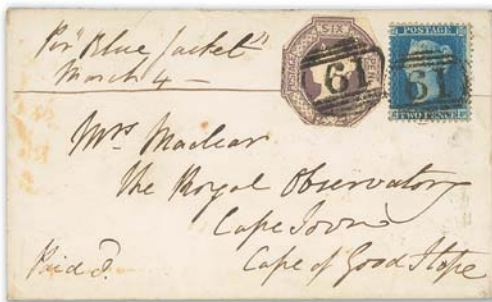 Per "Blue Jacket"
March 4 —
POSTAGE
SIX
61
POSTAGE
61
TWO PENCE
Mrs Maclear
The Royal Observatory
Cape Town
Cape of Good Hope
Paid